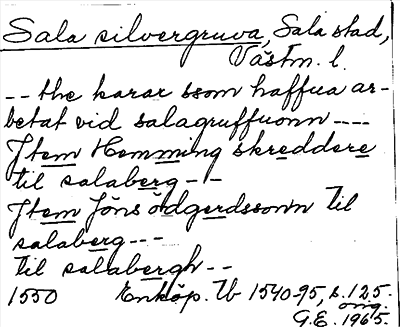 Sala silvergruva, Sala stad,
Västm. l.
-- the karar ssom haffua ar-
betat vid salagruffuonn ----
Jtem Hemming skreddere
til salaberg --
Jtem Jöns ödgerdssonn til
salaberg ---
til salabergh --
1550 Enköp. Tb 1540-95, s. 125.
orig.
G.E. 1965.